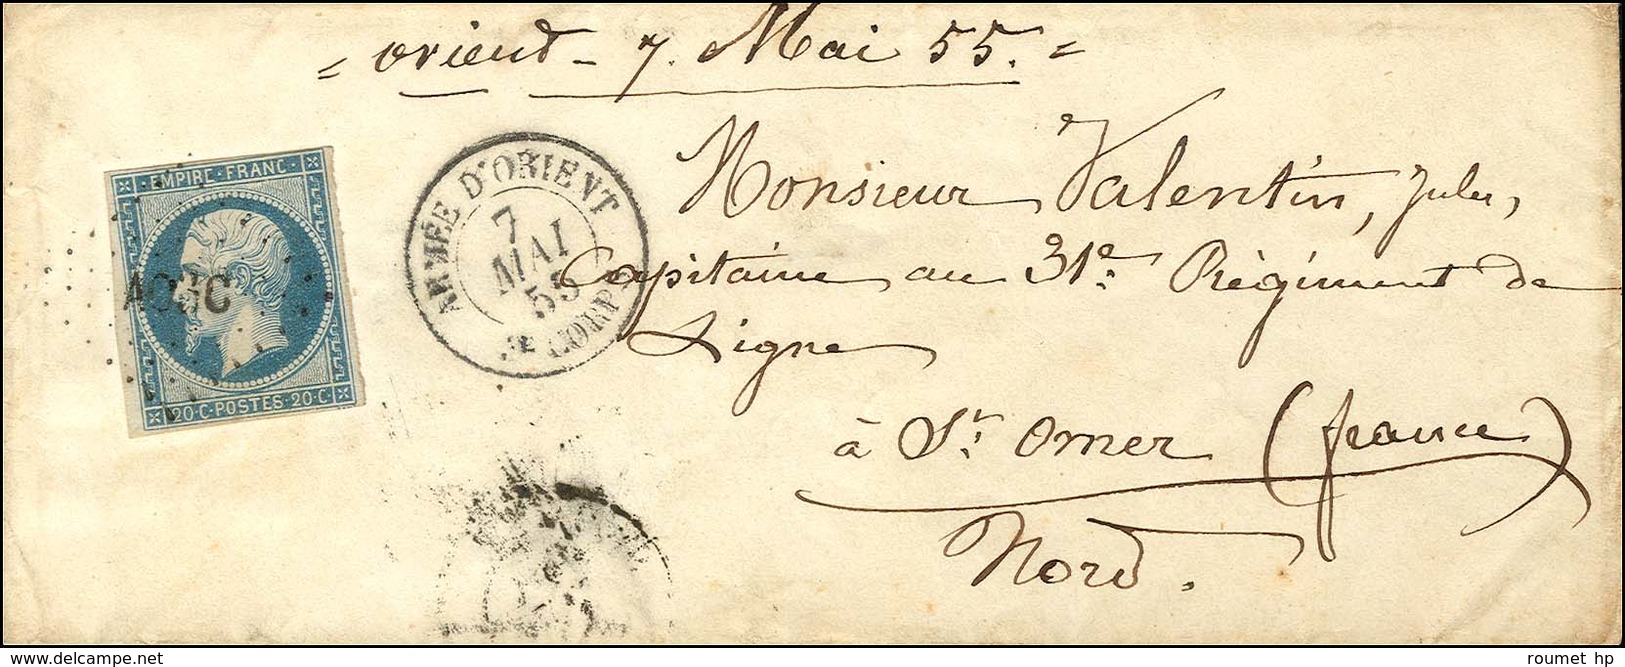 = orient - 7. Mai 55. =
EMPIRE·FRANC·
20·C·POSTES·20·C·
ARMÉE D'ORIENT
7
MAI
55
CORPS
Monsieur Valentin, Jules,
Capitaine au 31e. Régiment de
Ligne
à St. Omer (france)
Nord.
delcampe.net
roumet hp